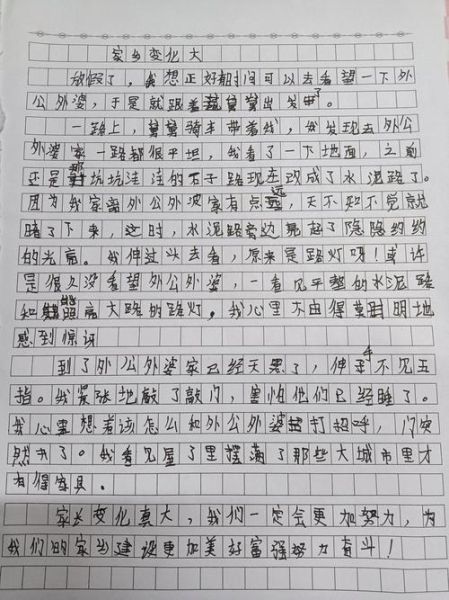 家乡变化大
放假了，我想正好有时间可以去看望一下外
公外婆，于是就跟着舅舅出发了。
一路上，舅舅骑车带着我，我发现去外公
外婆家一路都很平坦，我看了一下地面，之前
还是那坑坑洼洼的石子路现在改成了水泥路了。
因为我家离外公外婆家有点远，天不知不觉就
暗了下来，这时，水泥路旁边亮起了隐隐约约
的光亮。我伸过头去看，原来是路灯呀！或许
是很久没看望外公外婆，一看见平整的水泥路
和能照亮大路的路灯，我心里不由得莫名其明地
感到惊讶
到了外公外婆家已经天黑了，伸手不见五
指。我紧张地敲了敲门，害怕他们已经睡了。
我心里想着该怎么和外公外婆打招呼，门突
然开了。我看见屋子里摆满了那些大城市里才
有得家具。
家乡变化真大，我们一定会更加努力，为
我们的家乡建设更加美好富强努力奋斗！